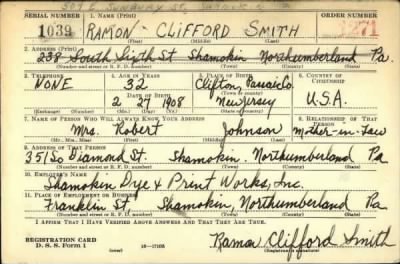 504 E. Sunbury St.
SERIAL NUMBER 1. NAME (Print) ORDER NUMBER
1039 RAMON CLIFFORD SMITH 1271
(First) (Middle) (Last)
2. ADDRESS (Print)
238 South Sixth St Shamokin Northumberland Pa.
(Number and street or R. F. D. number) (Town) (County) (State)
3. TELEPHONE 4. AGE IN YEARS 5. PLACE OF BIRTH 6. COUNTRY OF CITIZENSHIP
NONE 32 Clifton, Passaic Co.
DATE OF BIRTH (Town or county)
2 27 1908 New Jersey U.S.A.
(Exchange) (Number) (Mo.) (Day) (Yr.) (State or country)
7. NAME OF PERSON WHO WILL ALWAYS KNOW YOUR ADDRESS 8. RELATIONSHIP OF THAT PERSON
Mrs. Robert Johnson Mother-in-law
(Mr., Mrs., Miss) (First) (Middle) (Last)
9. ADDRESS OF THAT PERSON
351 So Diamond St. Shamokin. Northumberland Pa
(Number and street or R. F. D. number) (Town) (County) (State)
10. EMPLOYER'S NAME
Shamokin Dye & Print Works, Inc.
11. PLACE OF EMPLOYMENT OR BUSINESS
Franklin St, Shamokin, Northumberland Pa
(Number and street or R. F. D. number) (Town) (County) (State)
I AFFIRM THAT I HAVE VERIFIED ABOVE ANSWERS AND THAT THEY ARE TRUE.
REGISTRATION CARD
D. S. S. Form 1 (over) 16—17105 Ramon Clifford Smith
(Registrant's signature)